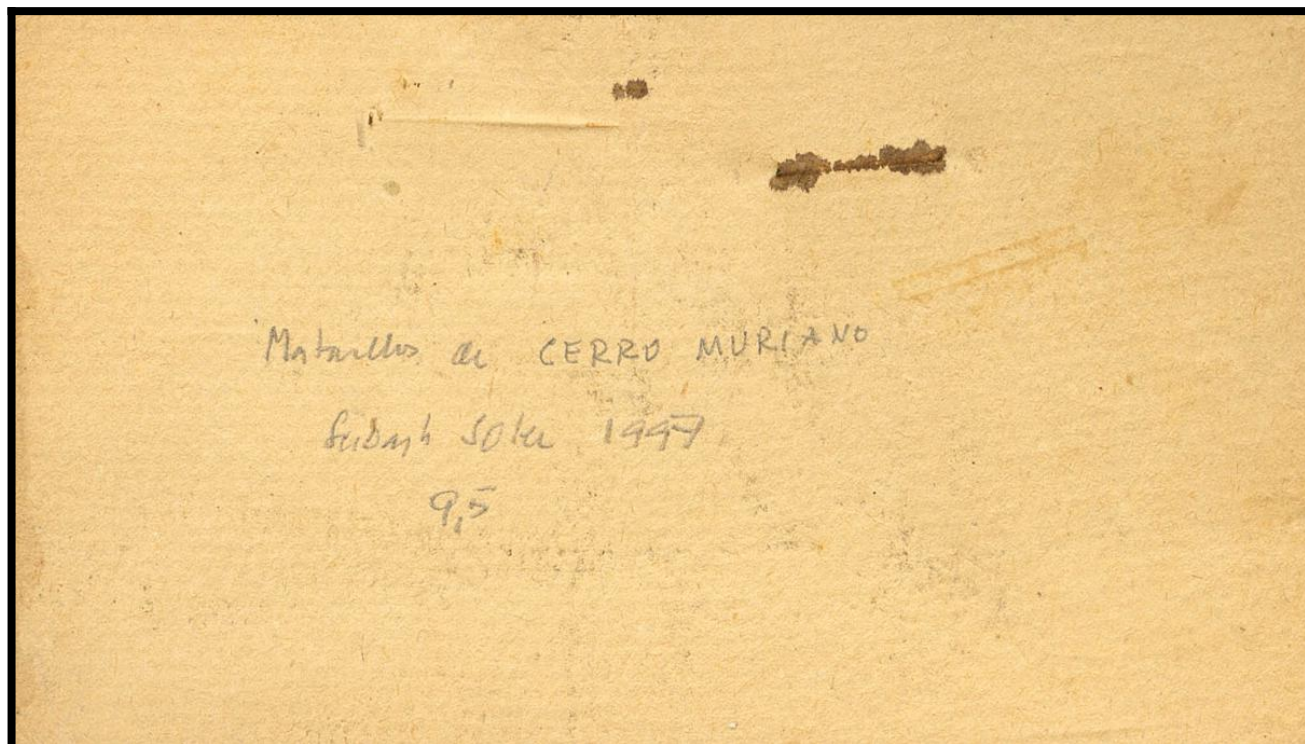 Matasellos de CERRO MURIANO
Subasta Soler 1997
9,5